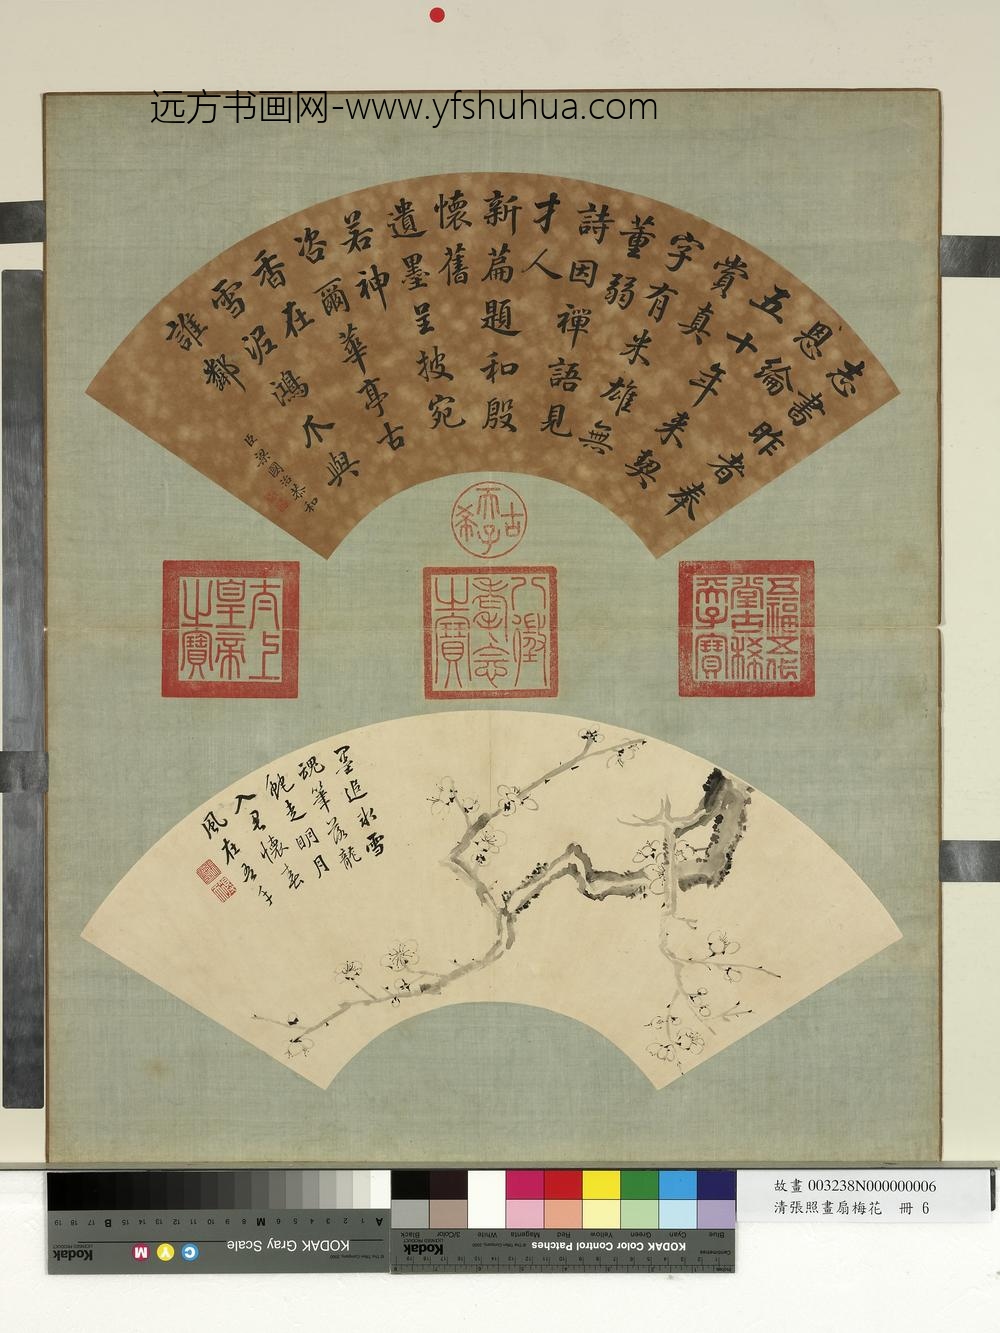 远方书画网-www.yfshuhua.com
志書昨者奉
恩綸
五十年來契
賞真
字有米雄無
董弱
詩因禪語見
才人
新篇題和殷
懷舊
遺墨呈披宛
若神
咨爾華亭古
香在
雪泥鴻爪與
誰鄰
臣梁國治恭和
古希天子
五福五代堂古稀天子寶
八徵耄念之寶
太上皇帝之寶
墨追冰雪
魂筆落龍
蛇走明月
入君懷春
風在吾手
故畫 003238N000000006
清張照畫扇梅花 冊 6
KODAK Gray Scale
Kodak
C Y M
A 1 2 3 4 5 6 M 8 9 10 11 12 13 14 15 B 17 18 19
KODAK Color Control Patches
Kodak
Blue Cyan Green Yellow Red Magenta White 3/Color Black